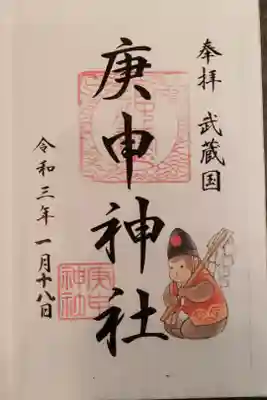 奉拝 武蔵国
庚申神社
令和三年一月十八日
庚申
神社